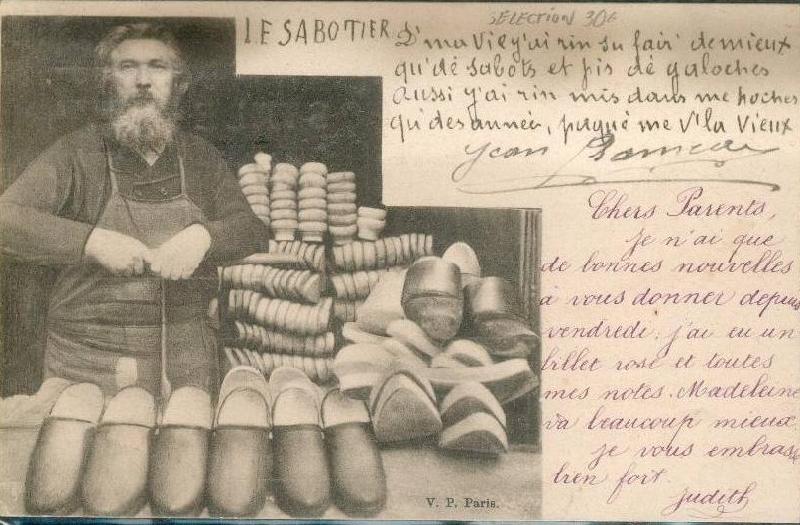 SELECTION 30€
LE SABOTIER
D'ma Vie y'ai rin su fair' de mieux
qu'dé sabots et pis dé galoches
aussi y'ai rin mis dans me poches
qu'des année, pisqué me v'la Vieux
Jean
Chers Parents,
Je n'ai que
de bonnes nouvelles
à vous donner depuis
vendredi: j'ai eu un
billet rose et toutes
mes notes. Madeleine
va beaucoup mieux.
je vous embrasse
bien fort.
Judith
V. P. Paris.